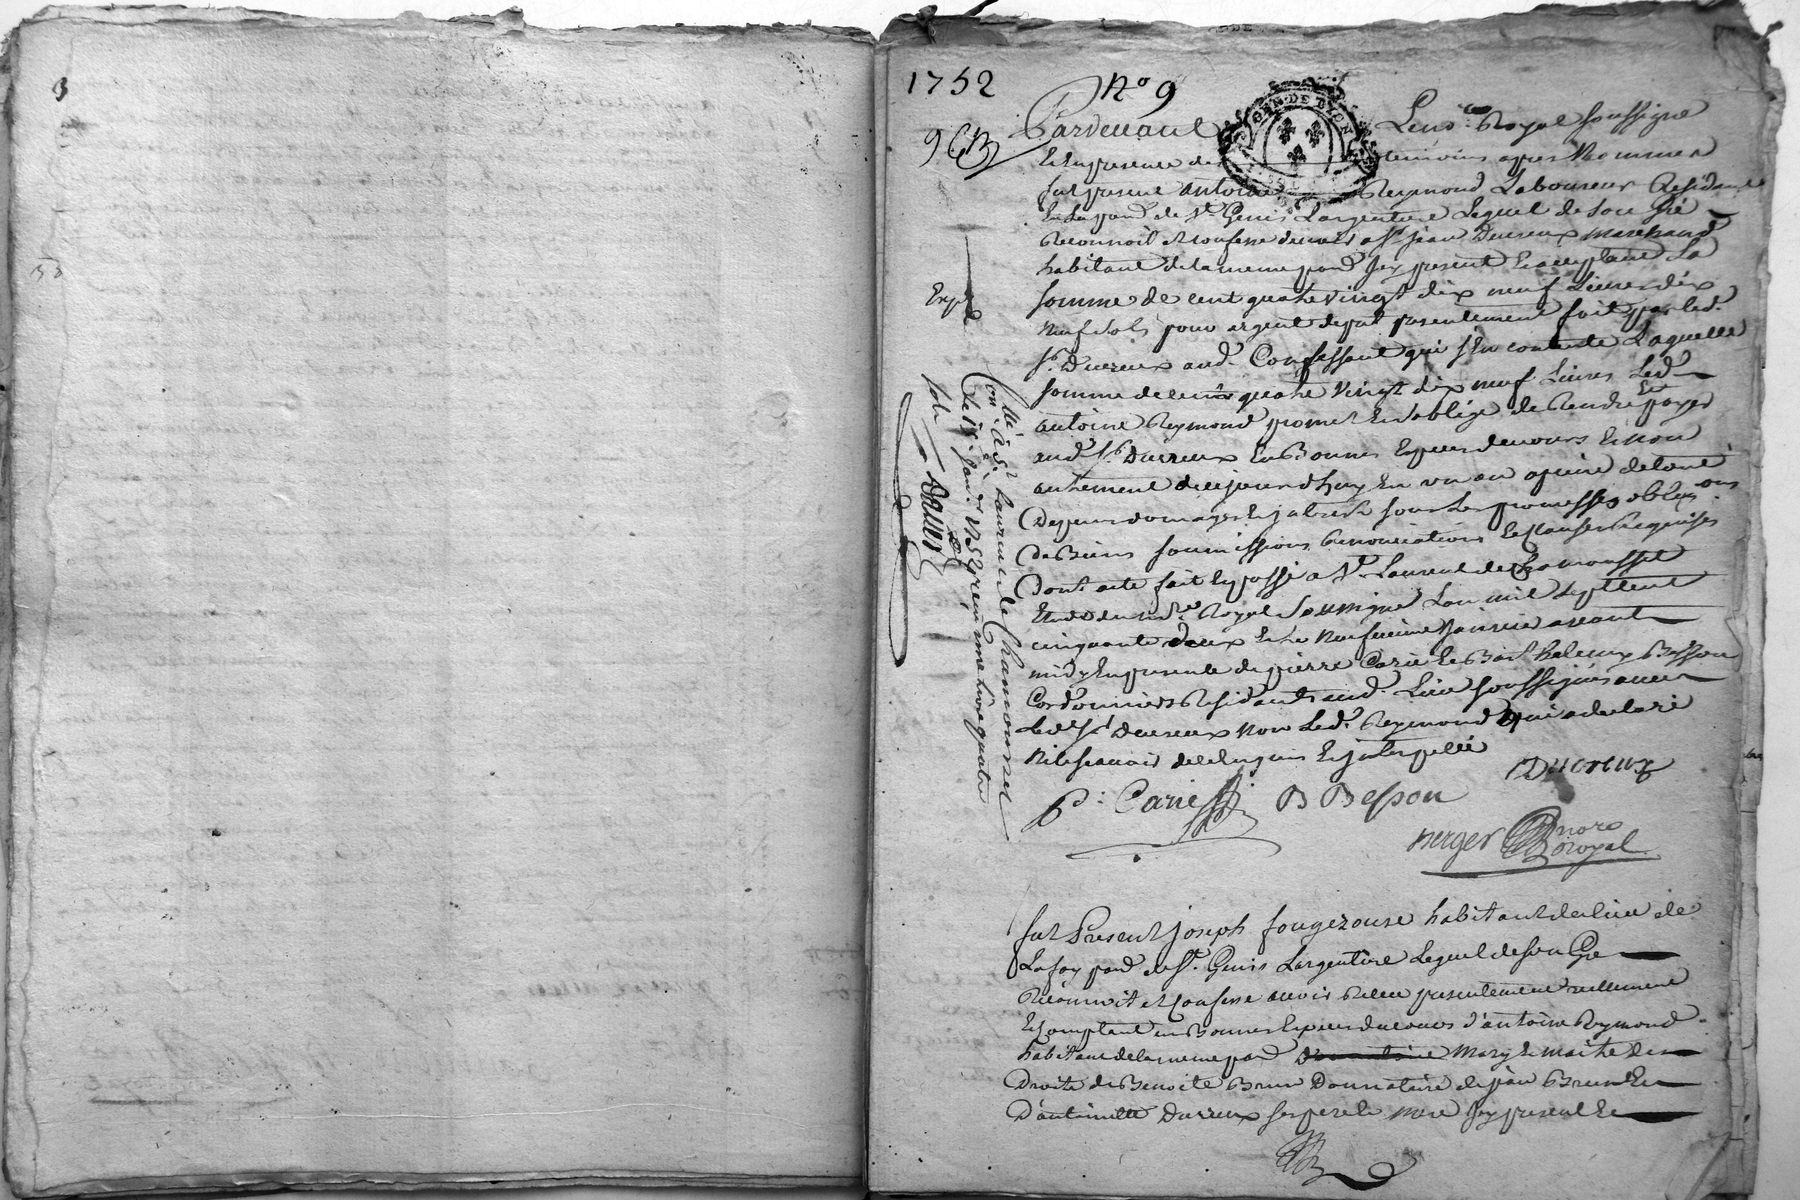 3
1752
No 9
9 CB
GEN · DE LYON
Pardevant Le no.re Royal soussigné
Et en presence des temoins apres Nommes
fut present antoine Reymond Laboureur Residant
En la par.e de St. Genis Largentiere Lequel de son Gré
Reconnoit et confesse devoir a Sr. jean Ducreux marchand
habitant de la meme par.e jcy present Et acceptant La
somme de cent quatre vingt dix neuf Livres dix
neuf sols pour argent de pret presentement fait par led.
Sr. Ducreux aud. Confessant qui s'En contente Laquelle
somme de cent quatre vingt dix neuf Livres Led.
antoine Reymond promet Et s'oblige de Rendre Et payer
aud. Sr. Ducreux En Bonnes Especes de cours Et non
autrement de ce jourd'huy En un an a peine de tous
Depens domages Et jnterets sous Les promesses obligations
De Biens soumissions Renonciations Et clauses Requises
Dont acte fait Et passé a St. Laurent de Chamousset
Etude du no.re Royal Soussigné L'an mil sept cent
cinquante deux Et Le Neufvieme Janvier avant
midy En presence de pierre Carie Et Barthelemy Besson
Cordonniers Residants aud. Lieu soussignés avec
Led. Sr. Ducreux Non Led. Reymond qui a declaré
Ne le scavoir de ce Enquis Et jnterpellé
Ducreux
P: Carie B Besson
Berger nore
royal
Exp.é
Con.llé à St. Laurent de Chamousset
Le ix. Jan.er 1752 reçu une livre quatre
sols
fut Present joseph fougerouse habitant du lieu de
Lafay par.e de St. Genis Largentiere Lequel de son Gré
Reconnoit et confesse avoir Receu presentement reellement
Et comptant en Bonnes Especes du cours d'antoine Reymond
habitant de la meme par.e Mary Et maitre des
Droits de Benoite Brun Donnataire de jean Brun Et
D'antoinette Ducreux ses pere Et mere jcy present Et